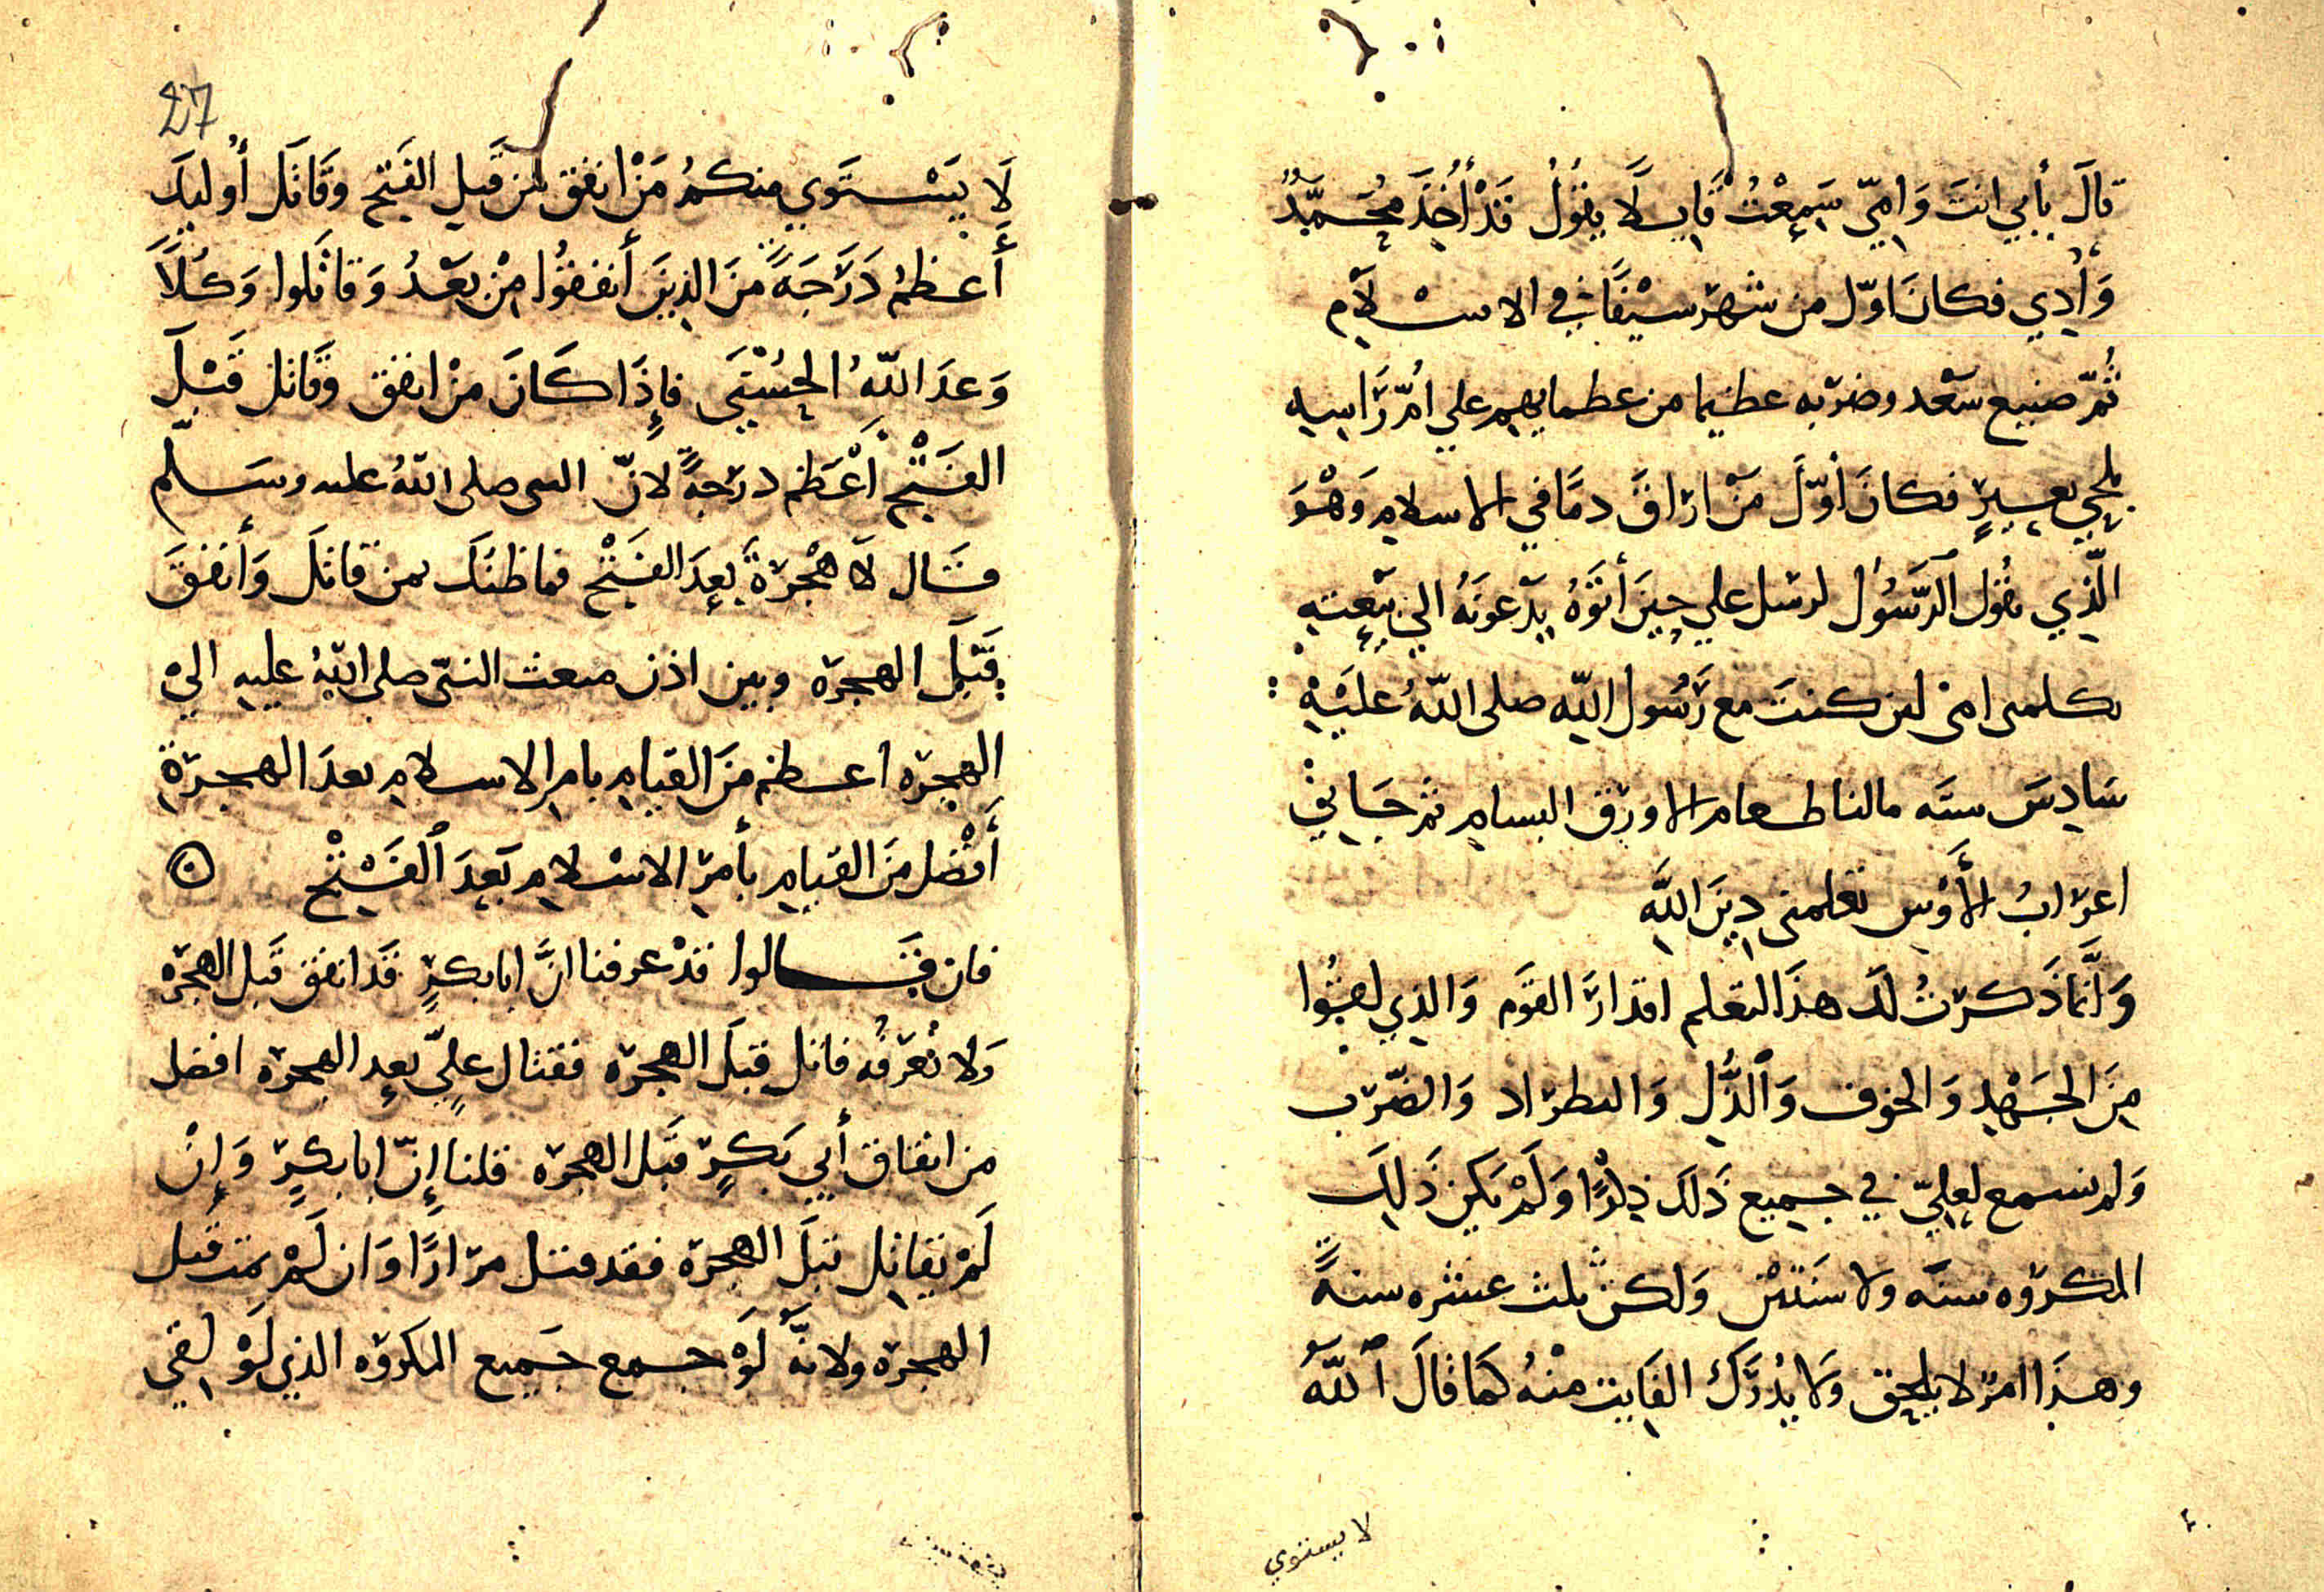 قَالَ بأبي انتَ وَامِيّ سَمِعْتُ قَايـلًا يقُولُ قَدْ أُخِذَ مُحَمَّدٌ
وَأُذِي فكانَ اوّل من شهرَ سيْفًا في الاسْلَام
ثُمّ صنيع سَعْد وضرْبه عظيما من عظمايهم علي امّ رَاسِه
بلَحْي بعِيرٍ فكانَ أوّلَ مَنْ ارَاقَ دمًا في الاسلام وَهْوَ
الّذِي يقُول الرَّسُول لرسل علي حِينَ أتَوْهُ يدْعونَهُ الي بَيْعتِهِ
كلمى امى لىن كنتَ مع رَسُول اللّه صلى اللّهُ عليْهِ
سَادِسَ ستَّه مالنا طعام الا ورق البسام ثم جَاني
اعرَابُ الأَوْس تعلمنى دِينَ اللَّهِ
وَانَّمَا ذَكرتُ لكَ هذَا لتعلم اقدارَ القوَم وَالذي لقُوا
مِنَ الجَهْدِ وَالخوف وَالذُّلِ وَالطرَاد وَالضّرْب
وَلم نسمع لعلِيّ في جميع ذَلك ذِكْرًا وَلَمْ يَكُن ذَلِكَ
المكروه سنَه ولا سنَتَيْن وَلكنْ ثلث عشره سنةً
وهذَا امرٌ لا يلحق وَلا يُدْرَك الفَايت منْهُ كمَا قَالَ ٱللَّهُ
لا يستوي
27
لَا يَسْتَوي منكمُ مَنْ انفق من قَبلِ الفَتحِ وَقَاتَل أُوليكَ
أَعظمُ دَرَجَةً منَ الذِينَ أنفقُوا مِنْ بعْدُ وَقاتَلوا وَكُلًّا
وَعدَ اللهُ الحُسْنَى فإِذَا كَانَ منْ انفق وَقَاتل قَبْلَ
الفَتْحِ أعْظم درَجةً لانّ النبى صلى اللهُ عليه وسَلّم
قَال لَا هْجرةَ بعدَ الفَتْحِ فما ظنُكَ بمن قاتلَ وَأنفقَ
قَبْلَ الهجرَه وبين اذن مبعث النبّى صلى اللّهُ عليه الي
الهجرَه اعظم منَ القيام بامر الاسلام بعدَ الهجرَةِ
أَفْضل منَ القيام بأمرِ الاسْلام بَعدَ ٱلفَتْح
فان قَالوا قدْ عرفنا انَّ ابا بكرٍ قَد انفق قَبل الهجرَه
وَلا نُعرَفُه قاتل قبلَ الهجرَه فقتال علِيّ بعد الهجره افضل
من انفاق أبي بَكرٍ قَبل الهجرَه قلنا إِنّ ابا بكرٍ وَإنْ
لَمْ يقاتِل قبلَ الهجرَه فقد قتل مرَارًا وَان لَمْ يمت قَبل
الهجرَه ولانَّهُ لَوْ جمع جَميع المكرُوه الذي لَوْ لقي